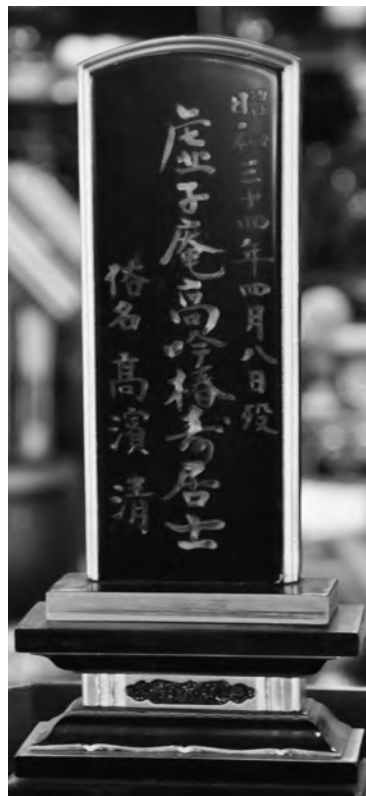 昭和三十四年四月八日歿
虚子庵高吟椿寿居士
俗名 高濱 清